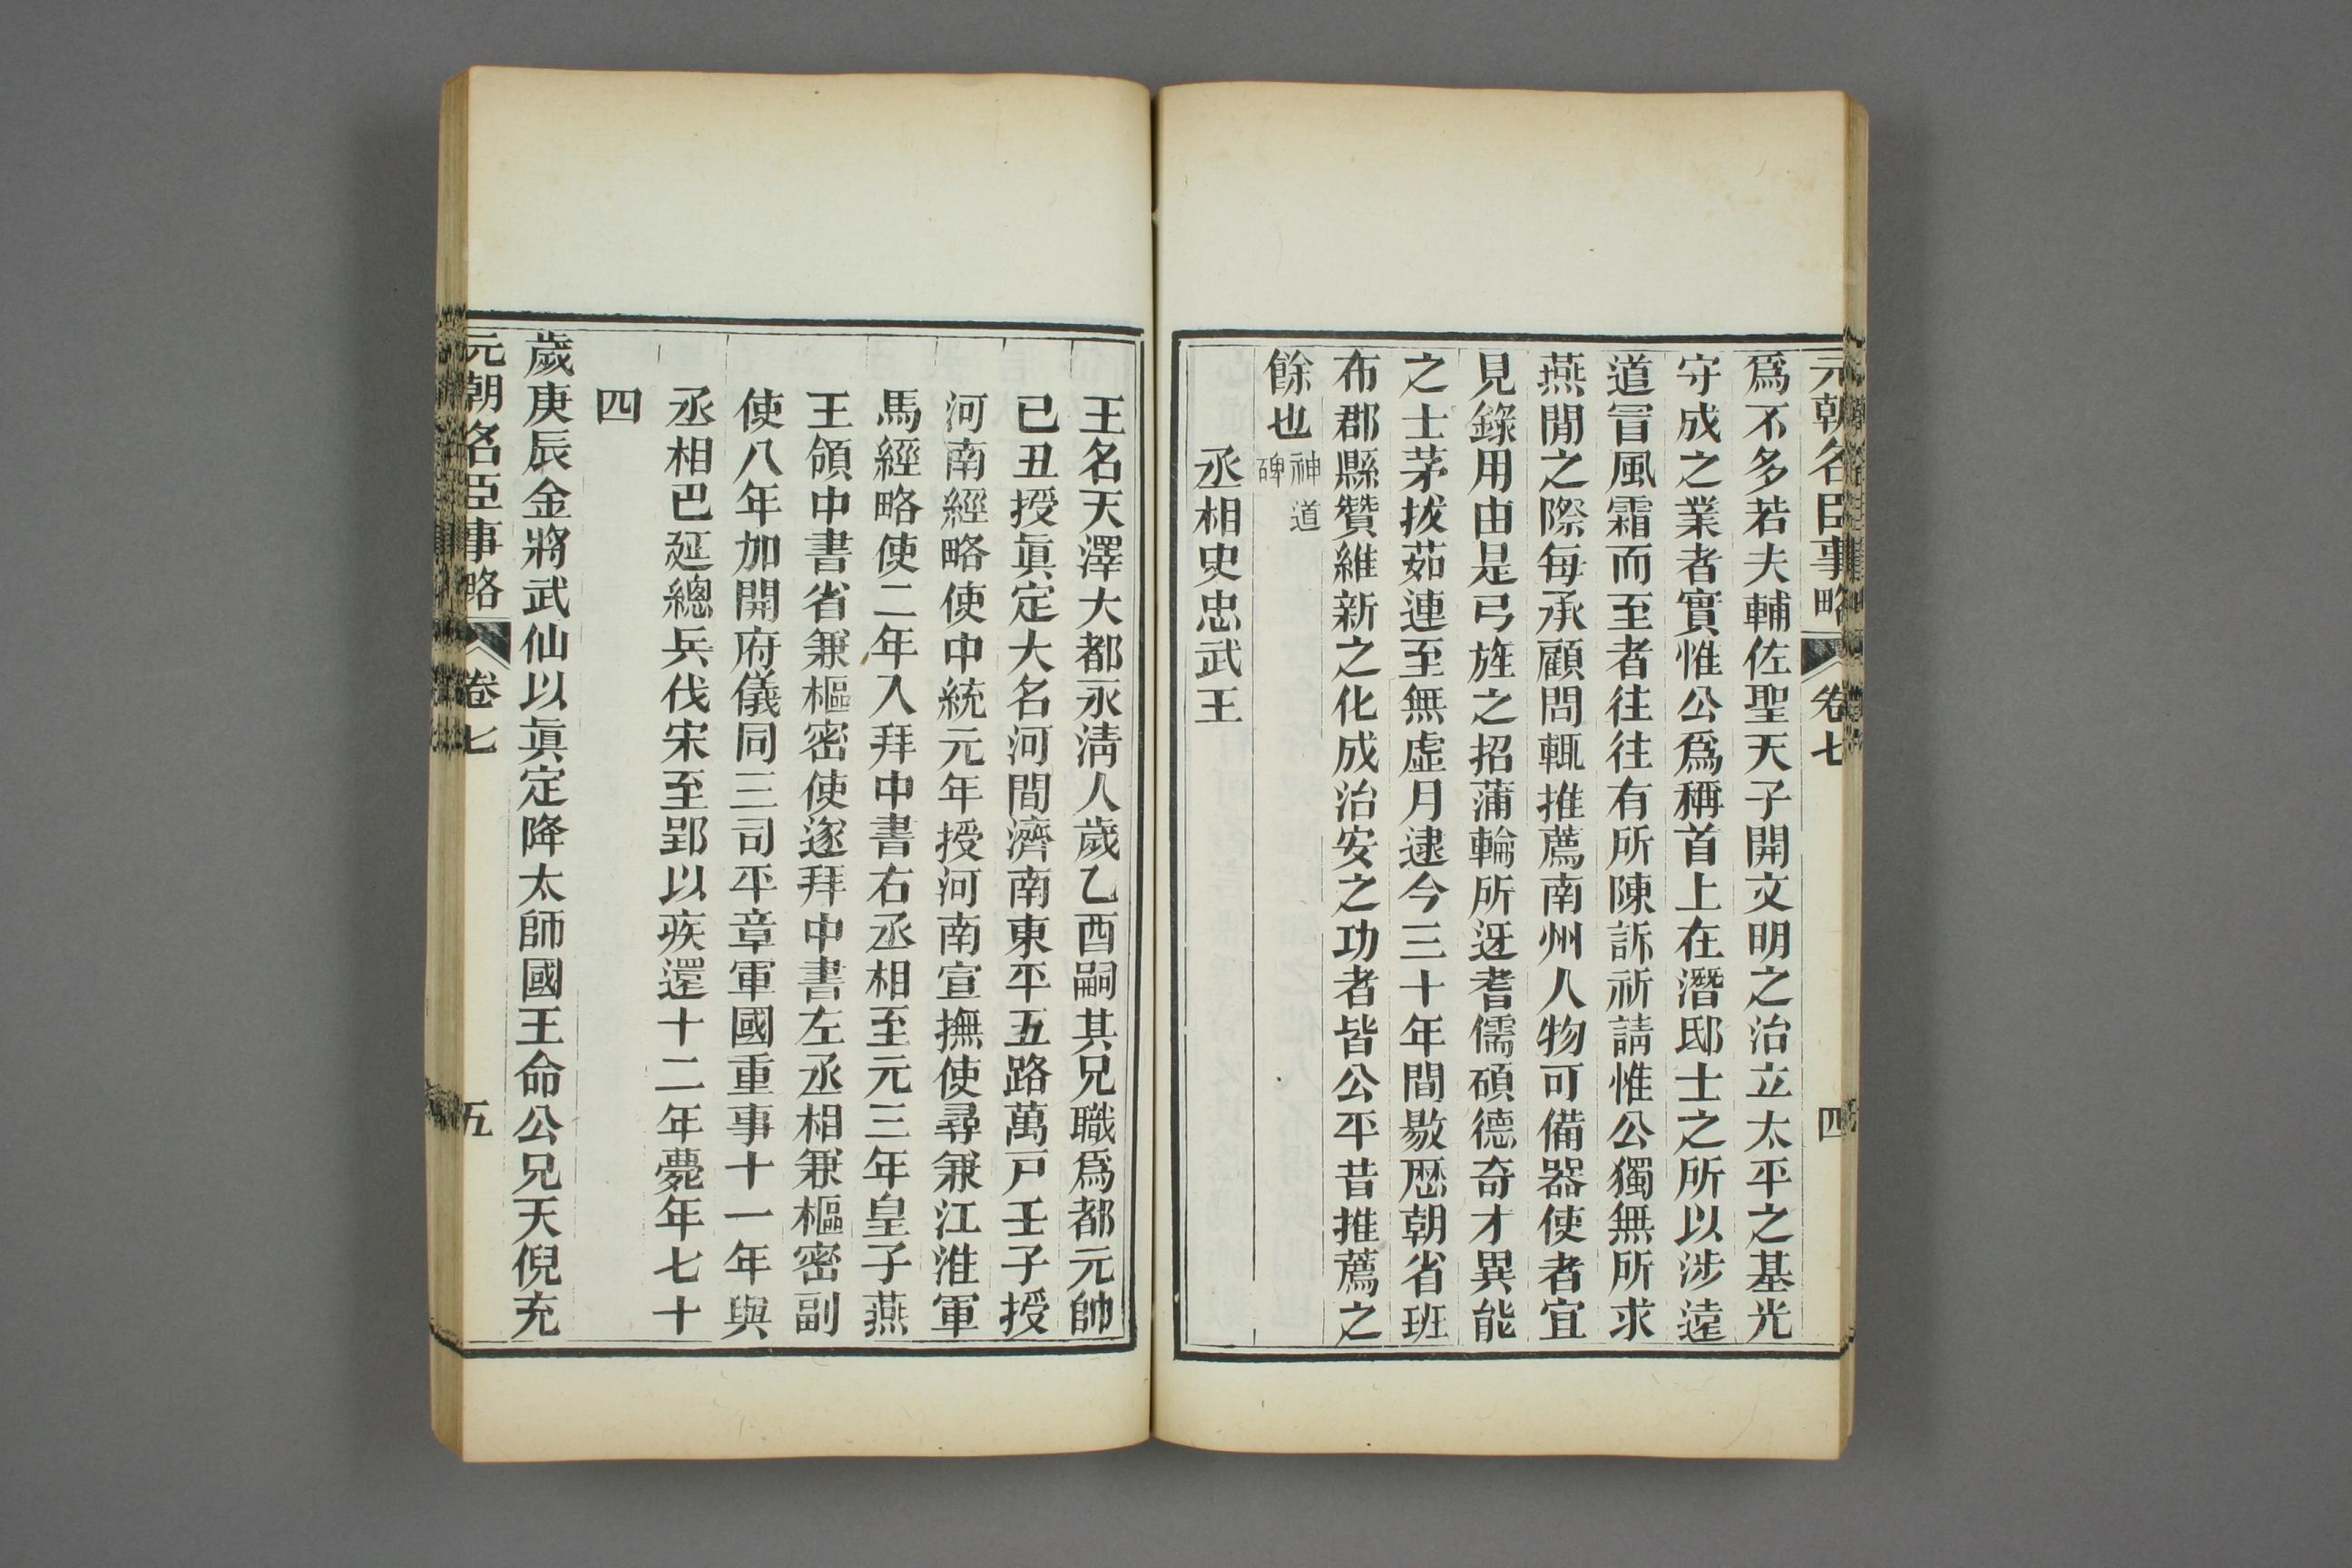 元朝名臣事略 卷七 四
爲不多若夫輔佐聖天子開文明之治立太平之基光
守成之業者實惟公爲稱首上在潛邸士之所以涉遠
道冒風霜而至者往往有所陳訴祈請惟公獨無所求
燕閒之際每承顧問輒推薦南州人物可備器使者宜
見錄用由是弓旌之招蒲輪所迓耆儒碩德奇才異能
之士茅拔茹連至無虛月逮今三十年間敭歷朝省班
布郡縣贊維新之化成治安之功者皆公平昔推薦之
餘也神道碑
丞相史忠武王
王名天澤大都永淸人歲乙酉嗣其兄職爲都元帥
已丑授眞定大名河間濟南東平五路萬戸壬子授
河南經略使中統元年授河南宣撫使尋兼江淮軍
馬經略使二年入拜中書右丞相至元三年皇子燕
王領中書省兼樞密使遂拜中書左丞相兼樞密副
使八年加開府儀同三司平章軍國重事十一年與
丞相巴延總兵伐宋至郢以疾還十二年薨年七十
四
歲庚辰金將武仙以眞定降太師國王命公兄天倪充
元朝名臣事略 卷七 五